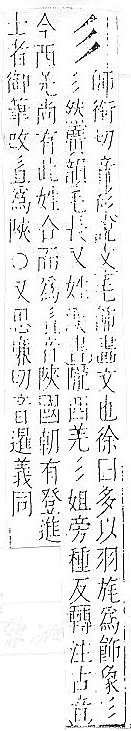 彡
師銜切音衫說文毛飾畫文也徐曰多以羽旄爲節象彡
彡然廣韻毛長又姓漢書隴西羌彡姐旁種反轉注古音
今西羌尚有此姓合而爲音陝國朝有登進
士者御筆改爲陝○又思廉切音暹義同